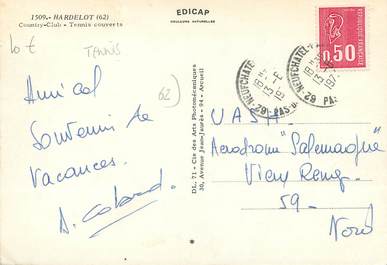 1509.- HARDELOT (62)
Country-Club - Tennis couverts
EDICAP
COULEURS NATURELLES
10 €
TENNIS
62
Amical
Souvenir de
Vacances.
DL. 71 - Cie des Arts Photomécaniques
30, Avenue Jean-Jaurès - 94 - Arcueil
REPUBLIQUE FRANCAISE
0,50
NEUFCHATEL
62 PAS-
U.A.S.H.
Aerodrome "Salemagne"
Vieux Reng.
59 -
Nord